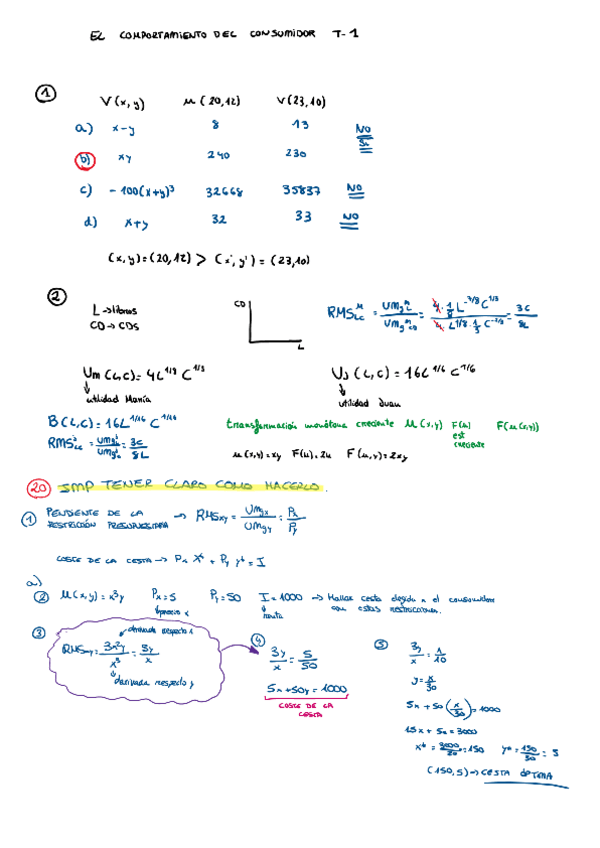 EL COMPORTAMIENTO DEL CONSUMIDOR T-1
①
V(x,y) u(20,12) V(23,10)
a) x-y 8 13 NO
Si
b) xy 240 230
c) -100(x+y)³ 32668 35837 NO
d) x+y 32 33 NO
(x,y)=(20,12) > (x',y') = (23,10)
②
L→libros
CD→CDS
CD
L
Um(L,C)=4L^1/8 C^1/3 UJ(L,C)=16L^1/6 C^1/6
utilidad María utilidad Juan
B(L,C)=16L^1/16 C^1/16 transformación monótona creciente u(x,y) F(u) F(u(x,y))
est
creciente
u(x,y)=xy F(u)=2u F(u,y)=2xy
20 SMP TENER CLARO COMO HACERLO.
① PENDIENTE DE LA RESTRICCIÓN PRESUPUESTARIA → RMSxy = UMgx/UMgy = Px/Py
COSTE DE LA CESTA → Px X* + Py y* = I
a)
② u(x,y)=x³y Px=5 Py=50 I=1000 → Hallar cesta elegida x el consumidor
con estas restricciones.
precio x renta
③ derivada respecto x
RMSxy = 3x²y/x³ = 3y/x
derivada respecto y
④
3y/x = 5/50
5x+50y=1000
COSTE DE LA CESTA
⑤
3y/x = 1/10
y=x/30
5x+50(x/30)=1000
15x+5x=3000
x*=3000/20=150 y*=150/30=5
(150,5)→CESTA ÓPTIMA